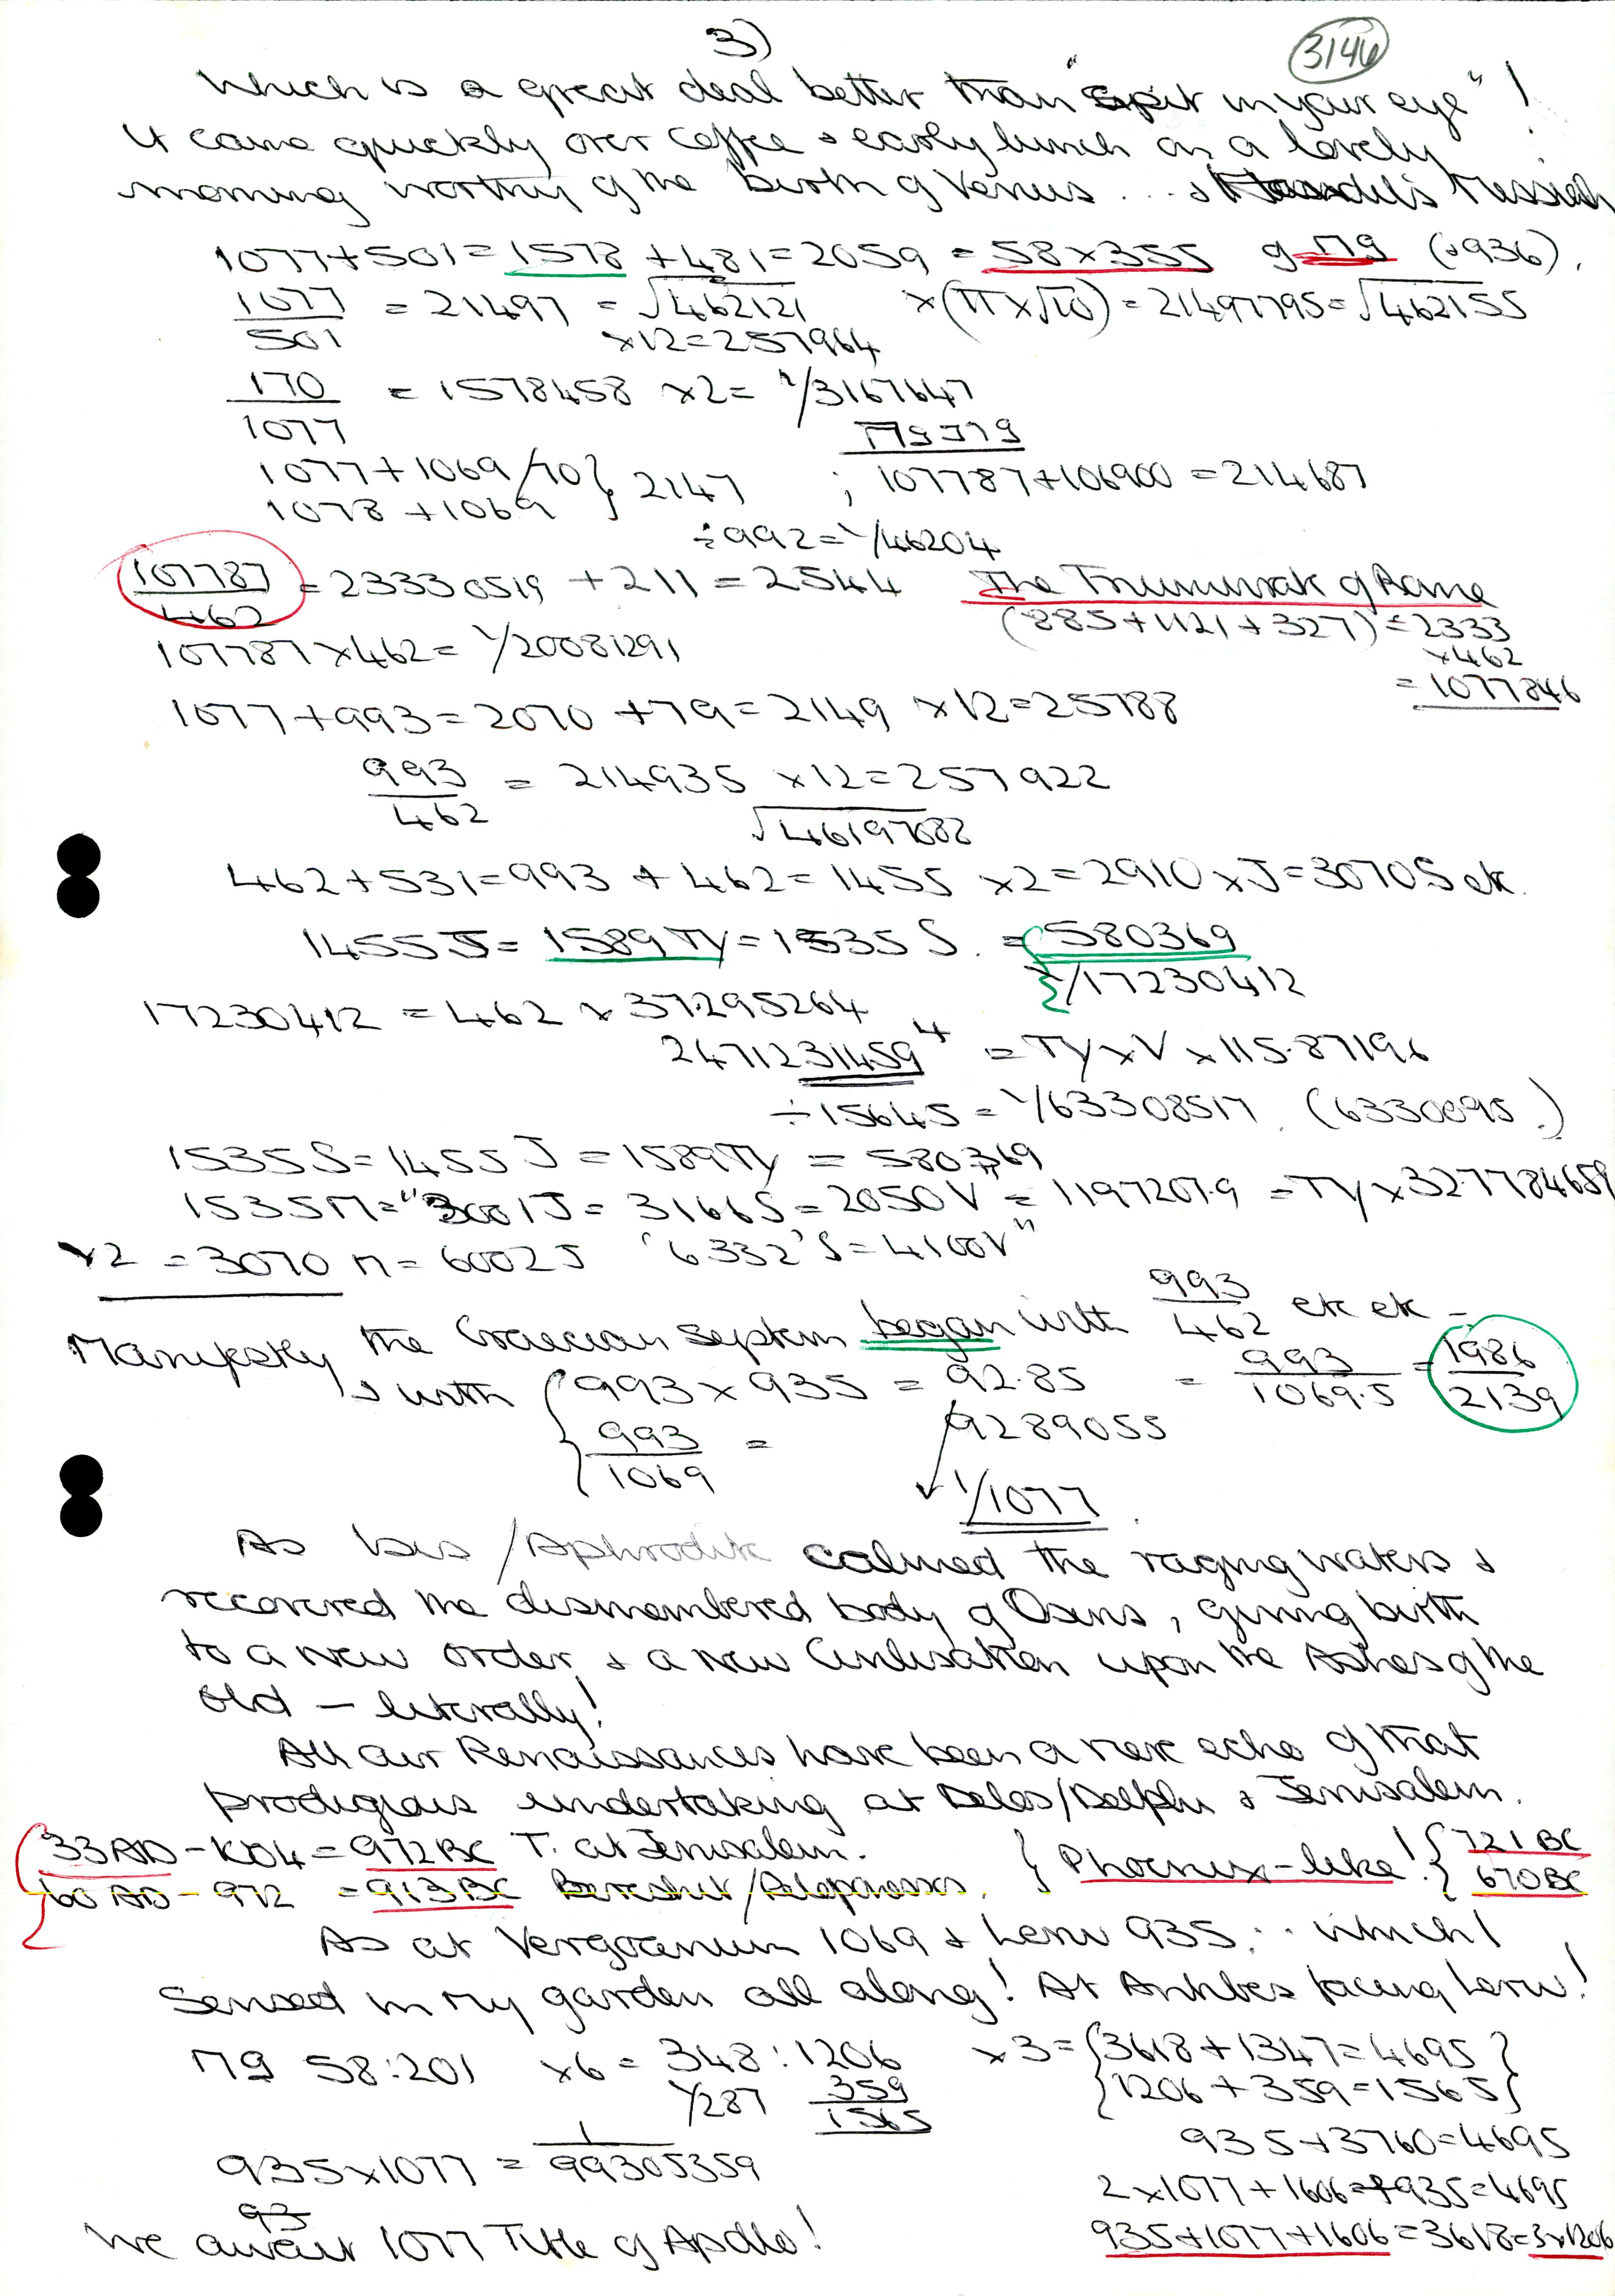 3)
3146
which is a great deal better than "spit in your eye"!
It came quickly over coffee & early lunch on a lovely
morning worthy of the birth of Venus ... & Handel's Messiah
1077+501=1578+481=2059=58×355 (.936).
1077/501 = 21497 = √462121 ×(π×√10)=21497795=√462155
×12=257964
170/1077 = 1578458 ×2= 1/3167647
1077+1069/70 } 2147 ; 107787+106900=214687
1078+1069
÷992=1/46204
107787/462 = 23330519 +211=2544 The Triumvirate of Rome
(885+1121+327)=2333
107787×462=1/20081291 ×462
=1077846
1077+993=2070+79=2149 ×12=25788
993/462 = 214935 ×12=257922
√46197082
462+531=993+462=1455 ×2=2910×J=3070S etc.
1455J=1589Ty=1535S. =580369
1/17230412
17230412=462×37.295264
2471231459⁴ = Ty×V×115.87196
÷15645=1/63308517 (6330895.)
1535S=1455J=1589Ty=580369
1535M="3001J=3166S=2050V"=1197207.9=Ty×32.7784659
×2=3070M=6002J '6332'S=4100V"
Manifestly the Graecian septum began with 993/462 etc etc –
& with { 993×935=92.85 = 993/1069.5 = 1986/2139
993/1069 = √9289055
1/1077
As Isis/Aphrodite calmed the raging waters &
recovered the dismembered body of Osiris, giving birth
to a new order & a new Civilisation upon the Ashes of the
old – literally!
All our Renaissances have been a mere echo of that
prodigious undertaking at Delos/Delphi & Jerusalem.
33AD-1004=972BC T. at Jerusalem. } Phoenix-like! { 721BC
60AD-972=913BC Bereshit/Peloponessos. 670BC
As at 1069 & 935... which I
sensed in my garden all along! At Antibes facing
58:201 ×6=348:1206 ×3={3618+1347=4695}
1/287 359 {1206+359=1565}
1565
935+3760=4695
935×1077=1/99305359
2×1077+1606+935=4695
93
We await 1077 Title of Apollo!
935+1077+1606=3618=3×1206